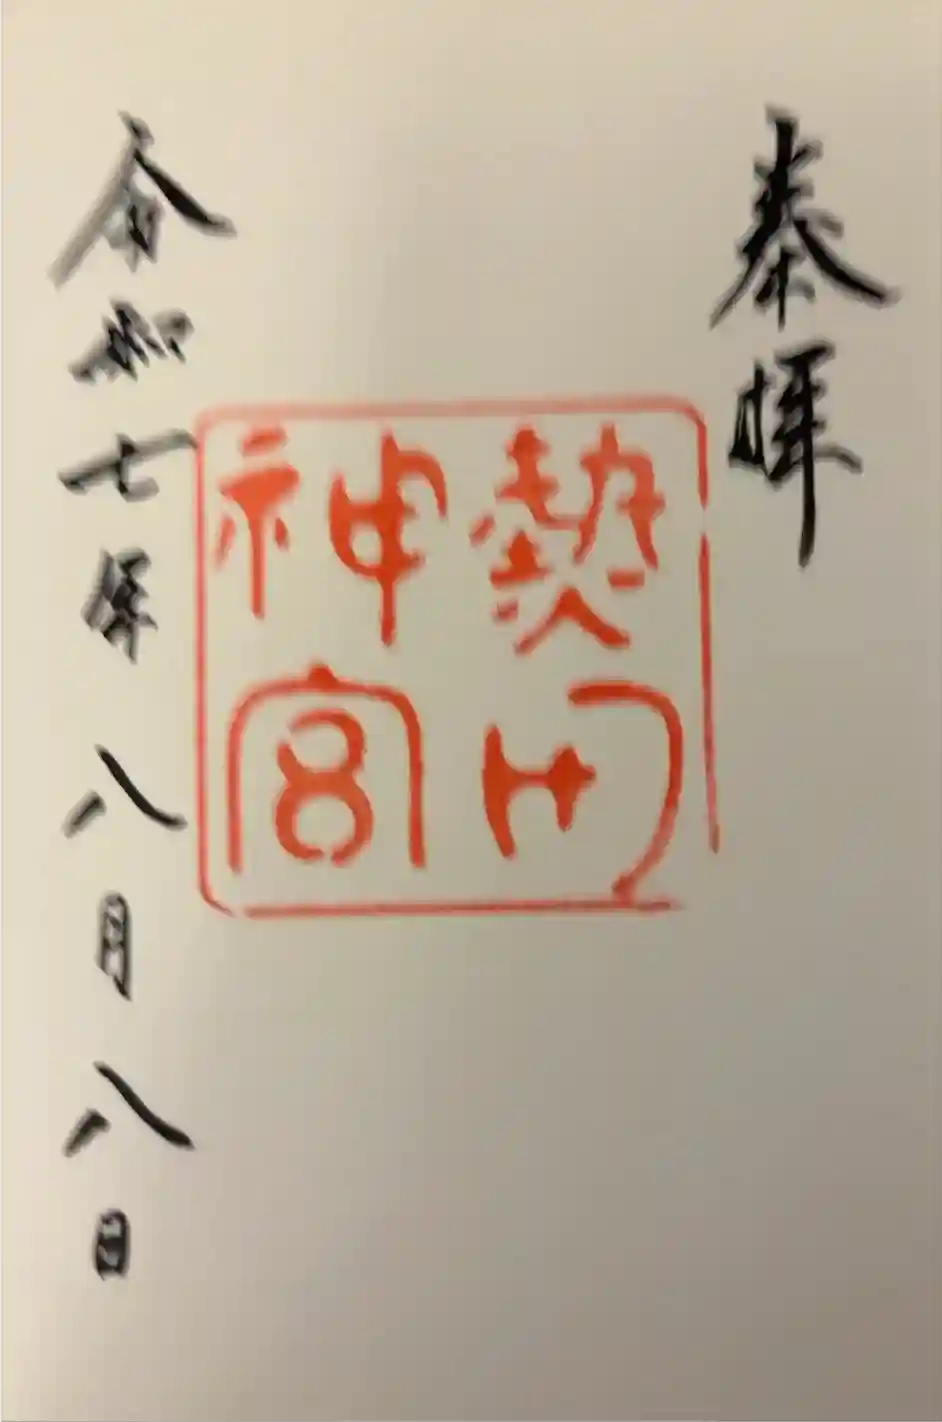 奉拝
熱田
神宮
令和七年
八月八日